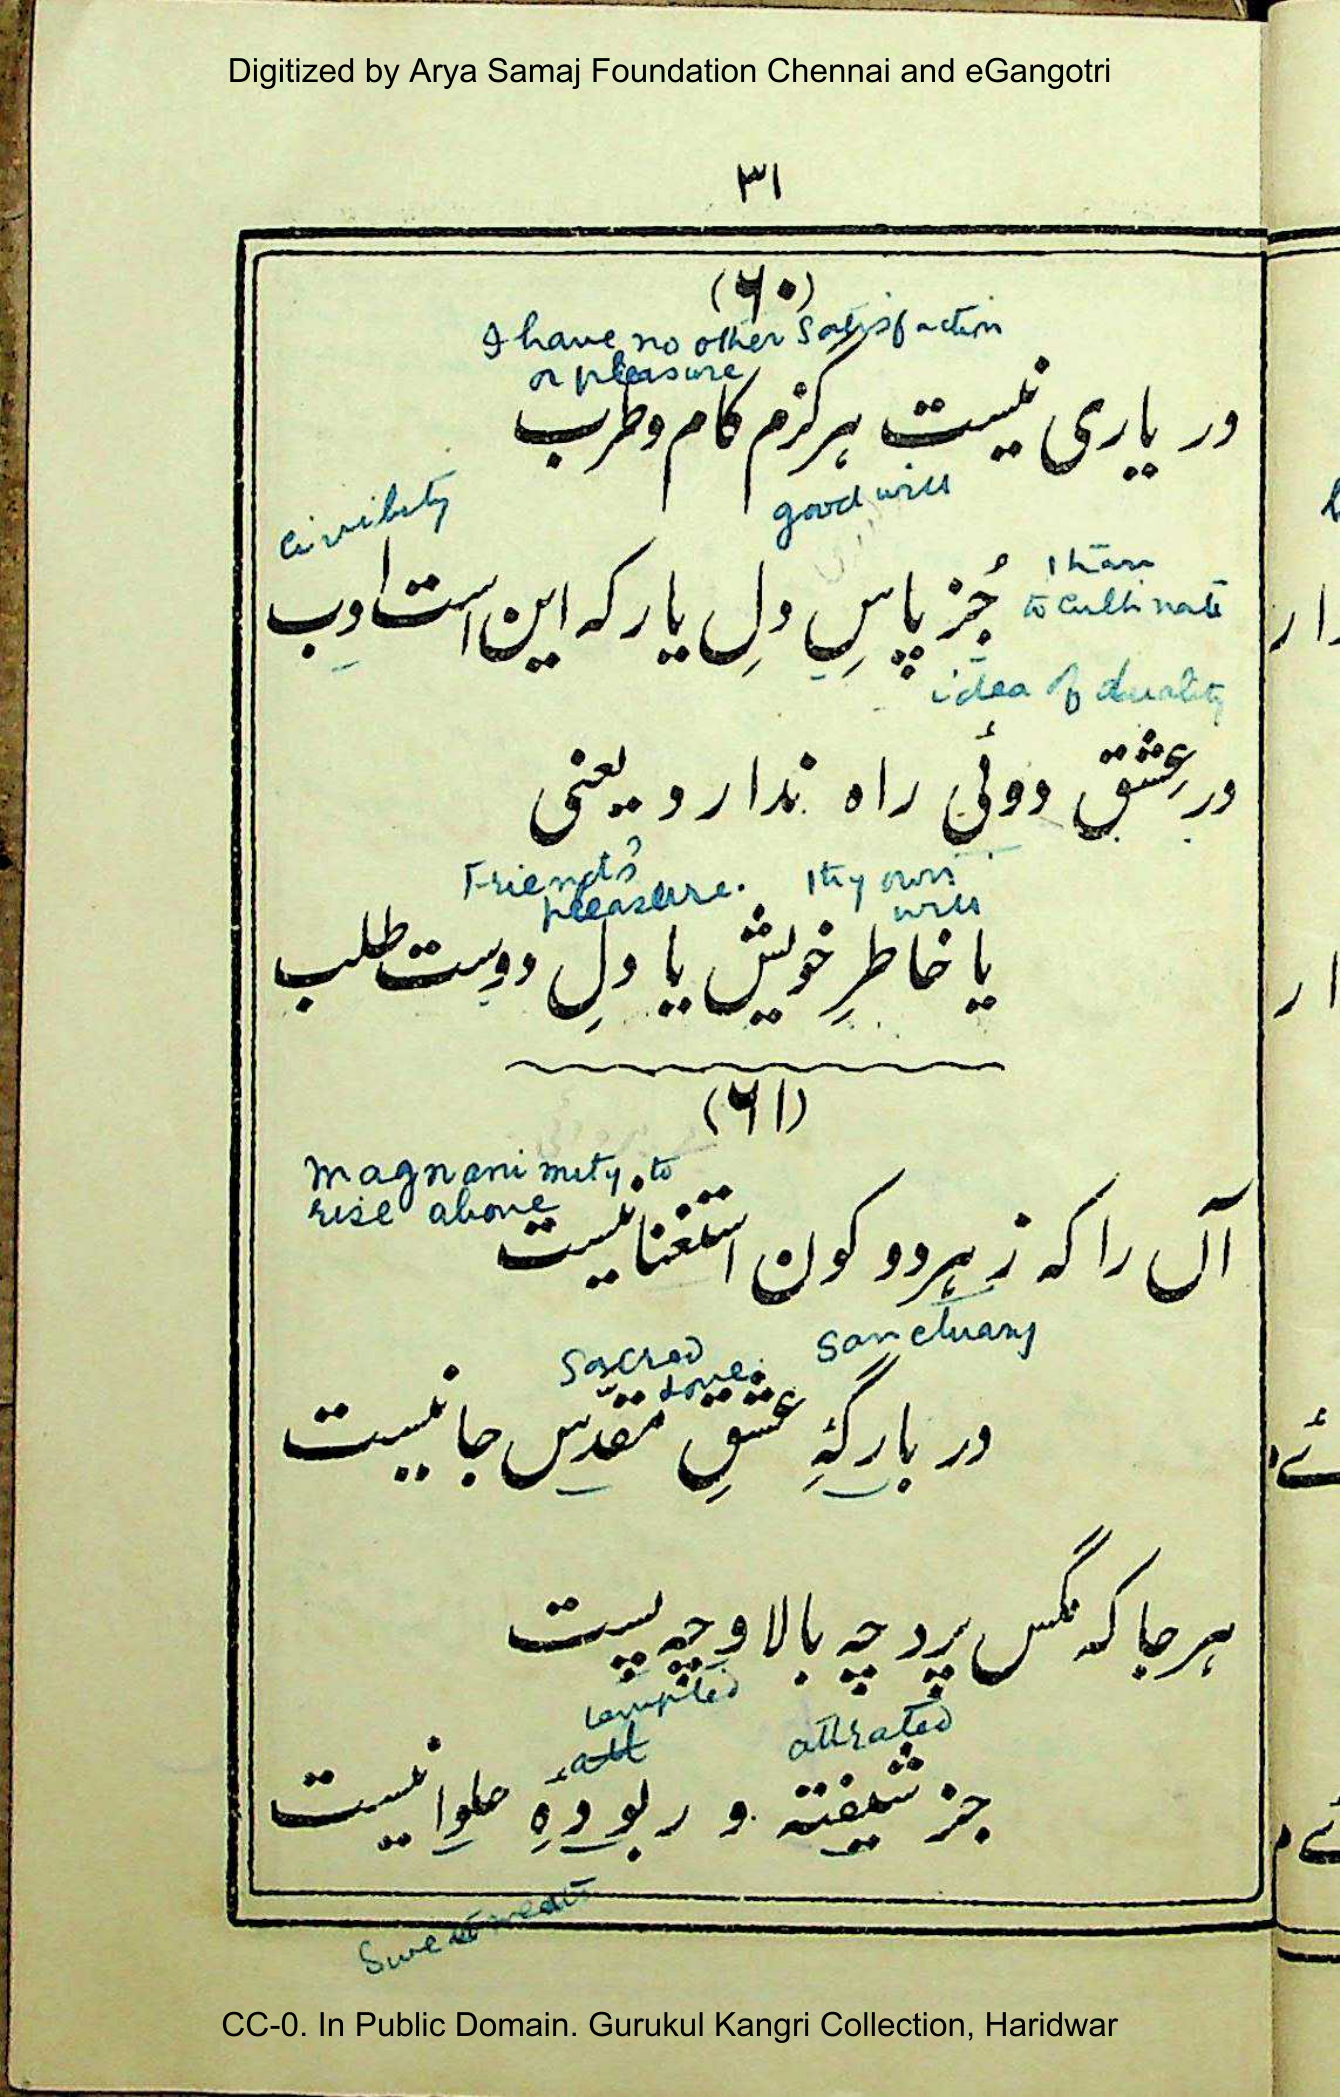 Digitized by Arya Samaj Foundation Chennai and eGangotri
۳۱
(۶۰)
I have no other satisfaction
or pleasure
در یاری نیست ہرگزم کام و طرب
civility
good will
جُز پاسِ دلِ یار کہ این است ادب
than
to cultivate
idea of duality
در عِشق دوئی راہ ندارد یعنی
Friend's
pleasure.
thy own
will
یا خاطرِ خویش یا دلِ دوست طلب
(۶۱)
magnanimity to
rise above
آں را کہ ز ہر دو کون استغنا نیست
Sacred
Love
Sanctuary
در بارگۂِ عشقِ مقدّس جا نیست
ہر جا کہ مگس پرد چہ بالا و چہ پست
tempted
att
attrated
جز شیفتہ و ربودۂِ حلوا نیست
Sweetmeats
CC-0. In Public Domain. Gurukul Kangri Collection, Haridwar